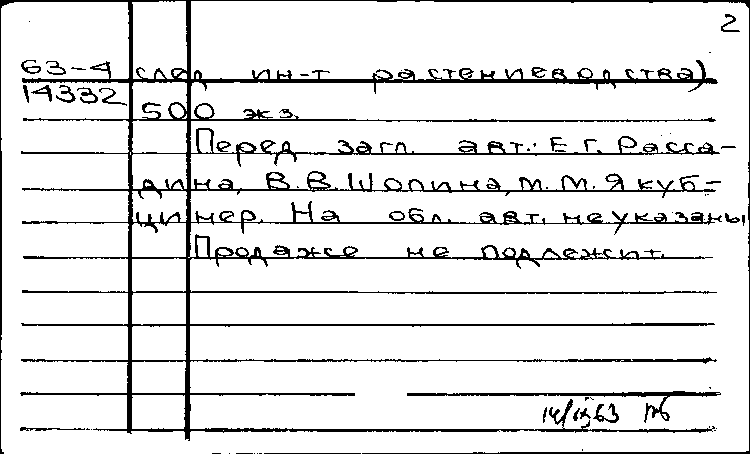 2
63-4 след. ин-т растениеводства)
14332
500 экз.
Перед загл. авт.: Е.Г. Расса-
дина, В.В. Шопина, М.М. Якуб-
цинер. На обл. авт. не указаны
Продаже не подлежит.
63